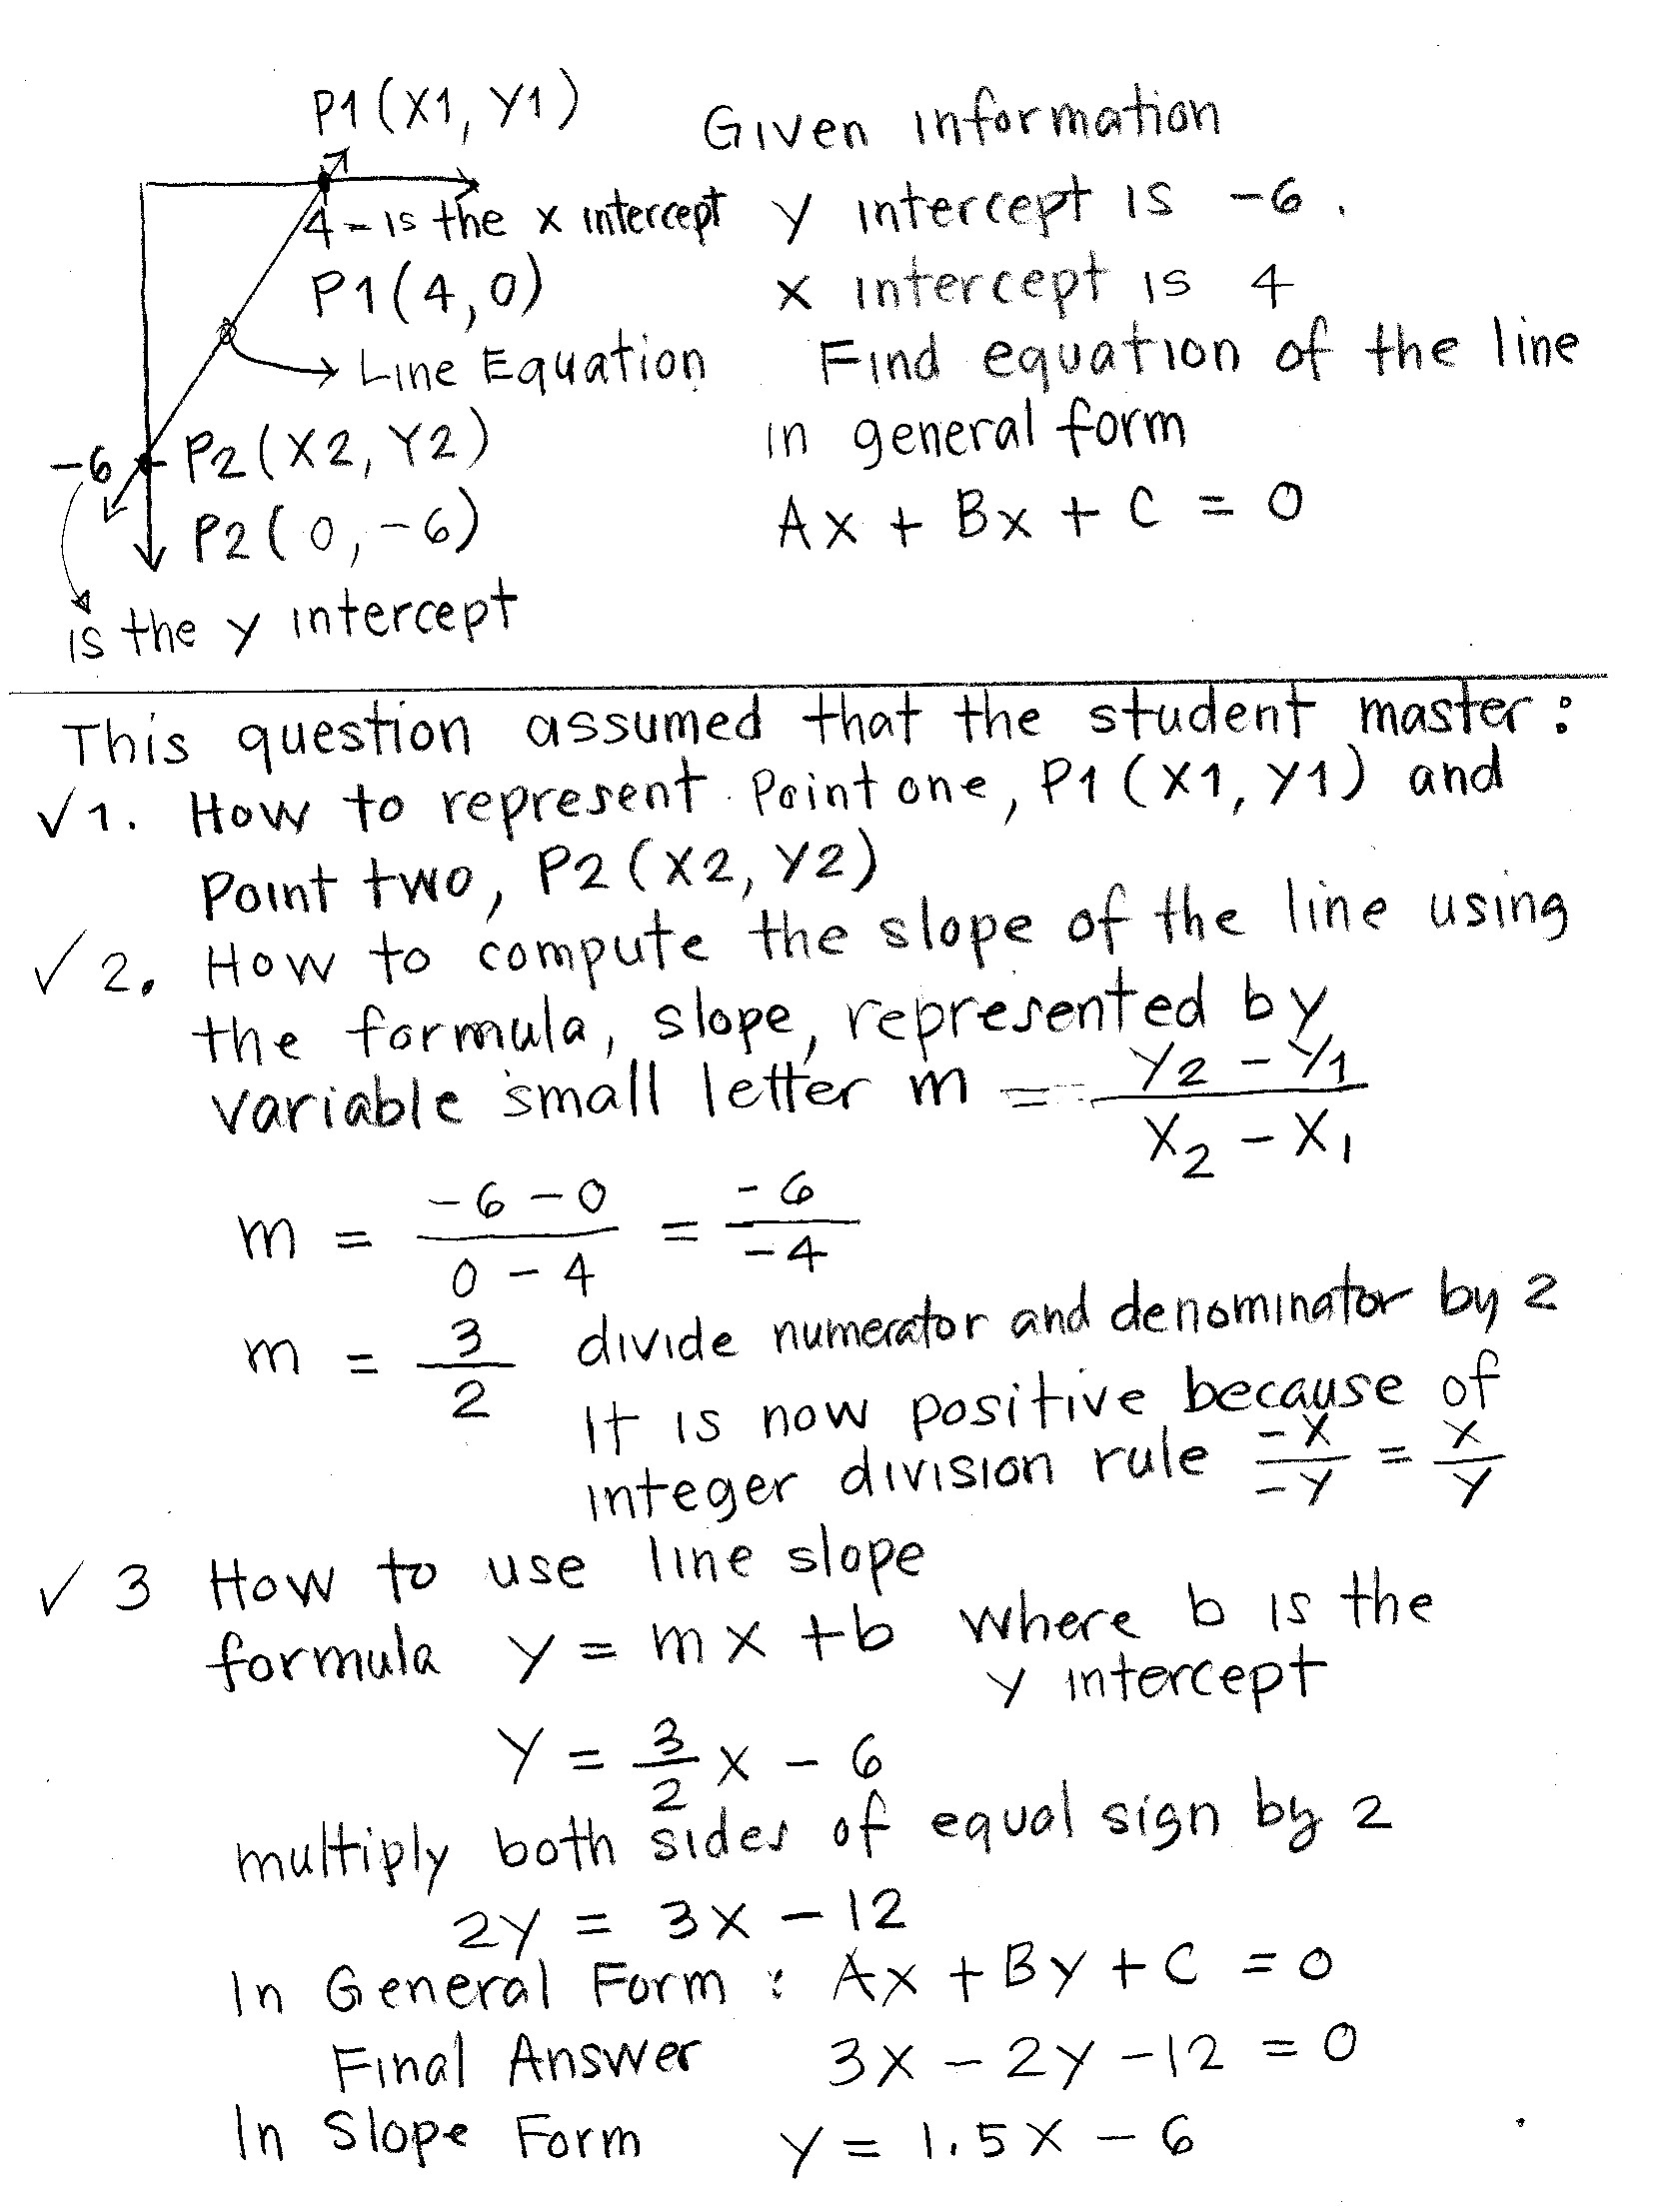 P1(X1, Y1)
4 - is the x intercept
P1(4,0)
Line Equation
-6
P2(X2, Y2)
P2(0,-6)
is the y intercept
Given information
y intercept is -6.
x intercept is 4
Find equation of the line
in general form
Ax + Bx + C = 0
This question assumed that the student master:
✓1. How to represent Point one, P1(X1, Y1) and
Point two, P2(X2, Y2)
✓2. How to compute the slope of the line using
the formula, slope, represented by
variable small letter m = (Y2 - Y1)/(X2 - X1)
m = (-6-0)/(0-4) = -6/-4
m = 3/2 divide numerator and denominator by 2
It is now positive because of
integer division rule -X/-Y = X/Y
✓3 How to use line slope
formula y = mx + b where b is the
y intercept
Y = 3/2 X - 6
multiply both sides of equal sign by 2
2Y = 3X - 12
In General Form : Ax + By + C = 0
Final Answer 3X - 2Y - 12 = 0
In Slope Form y = 1.5X - 6